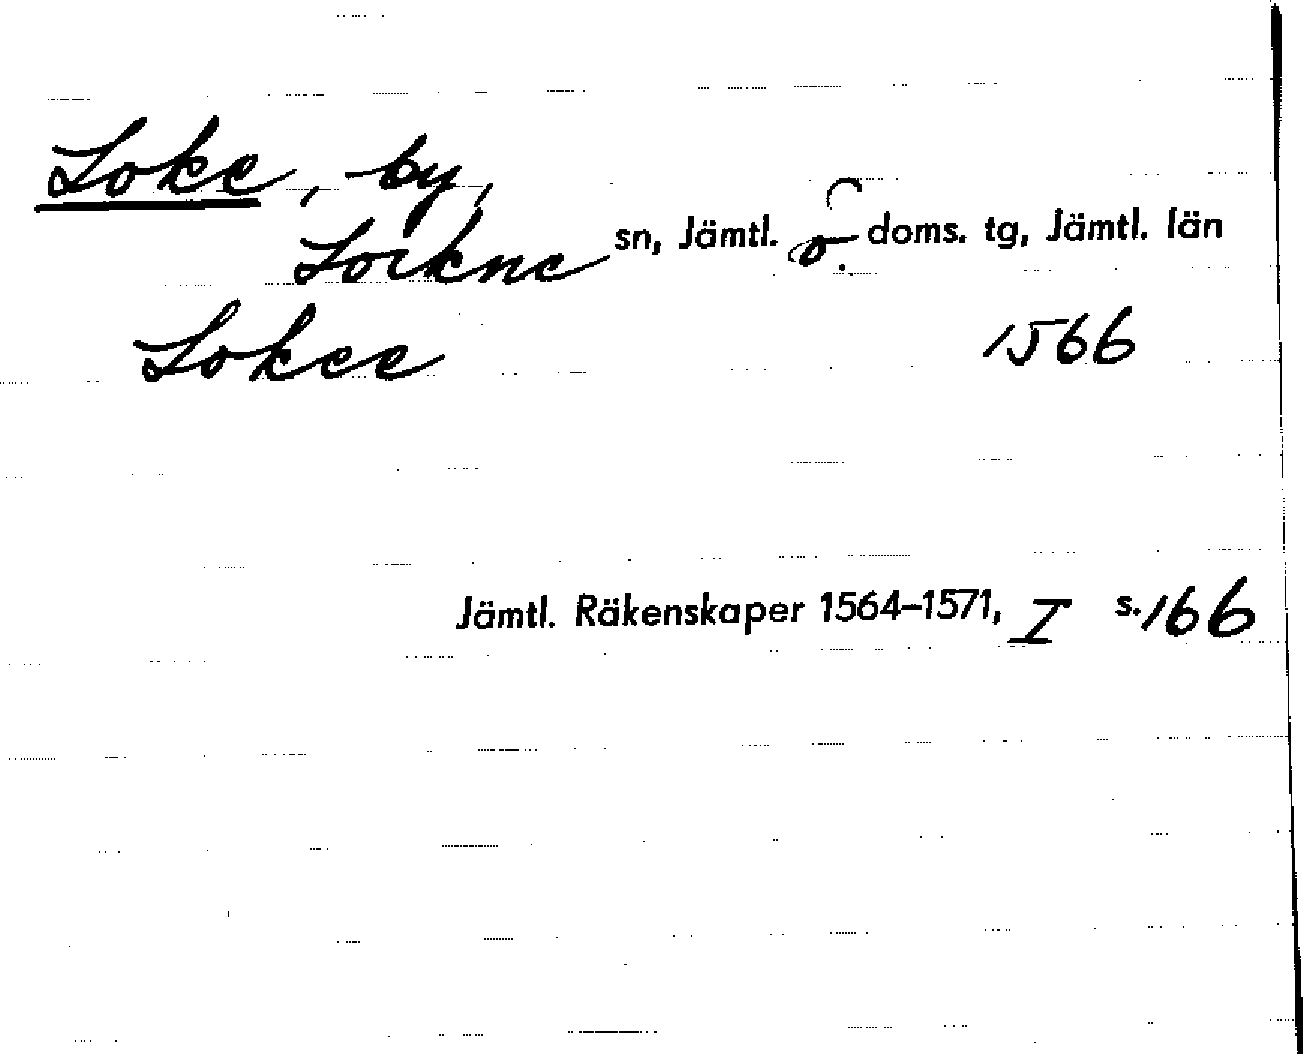 Loke, by,
Lockne sn, Jämtl. ö. doms. tg, Jämtl. län
Lokee 1566
Jämtl. Räkenskaper 1564–1571, I s. 166